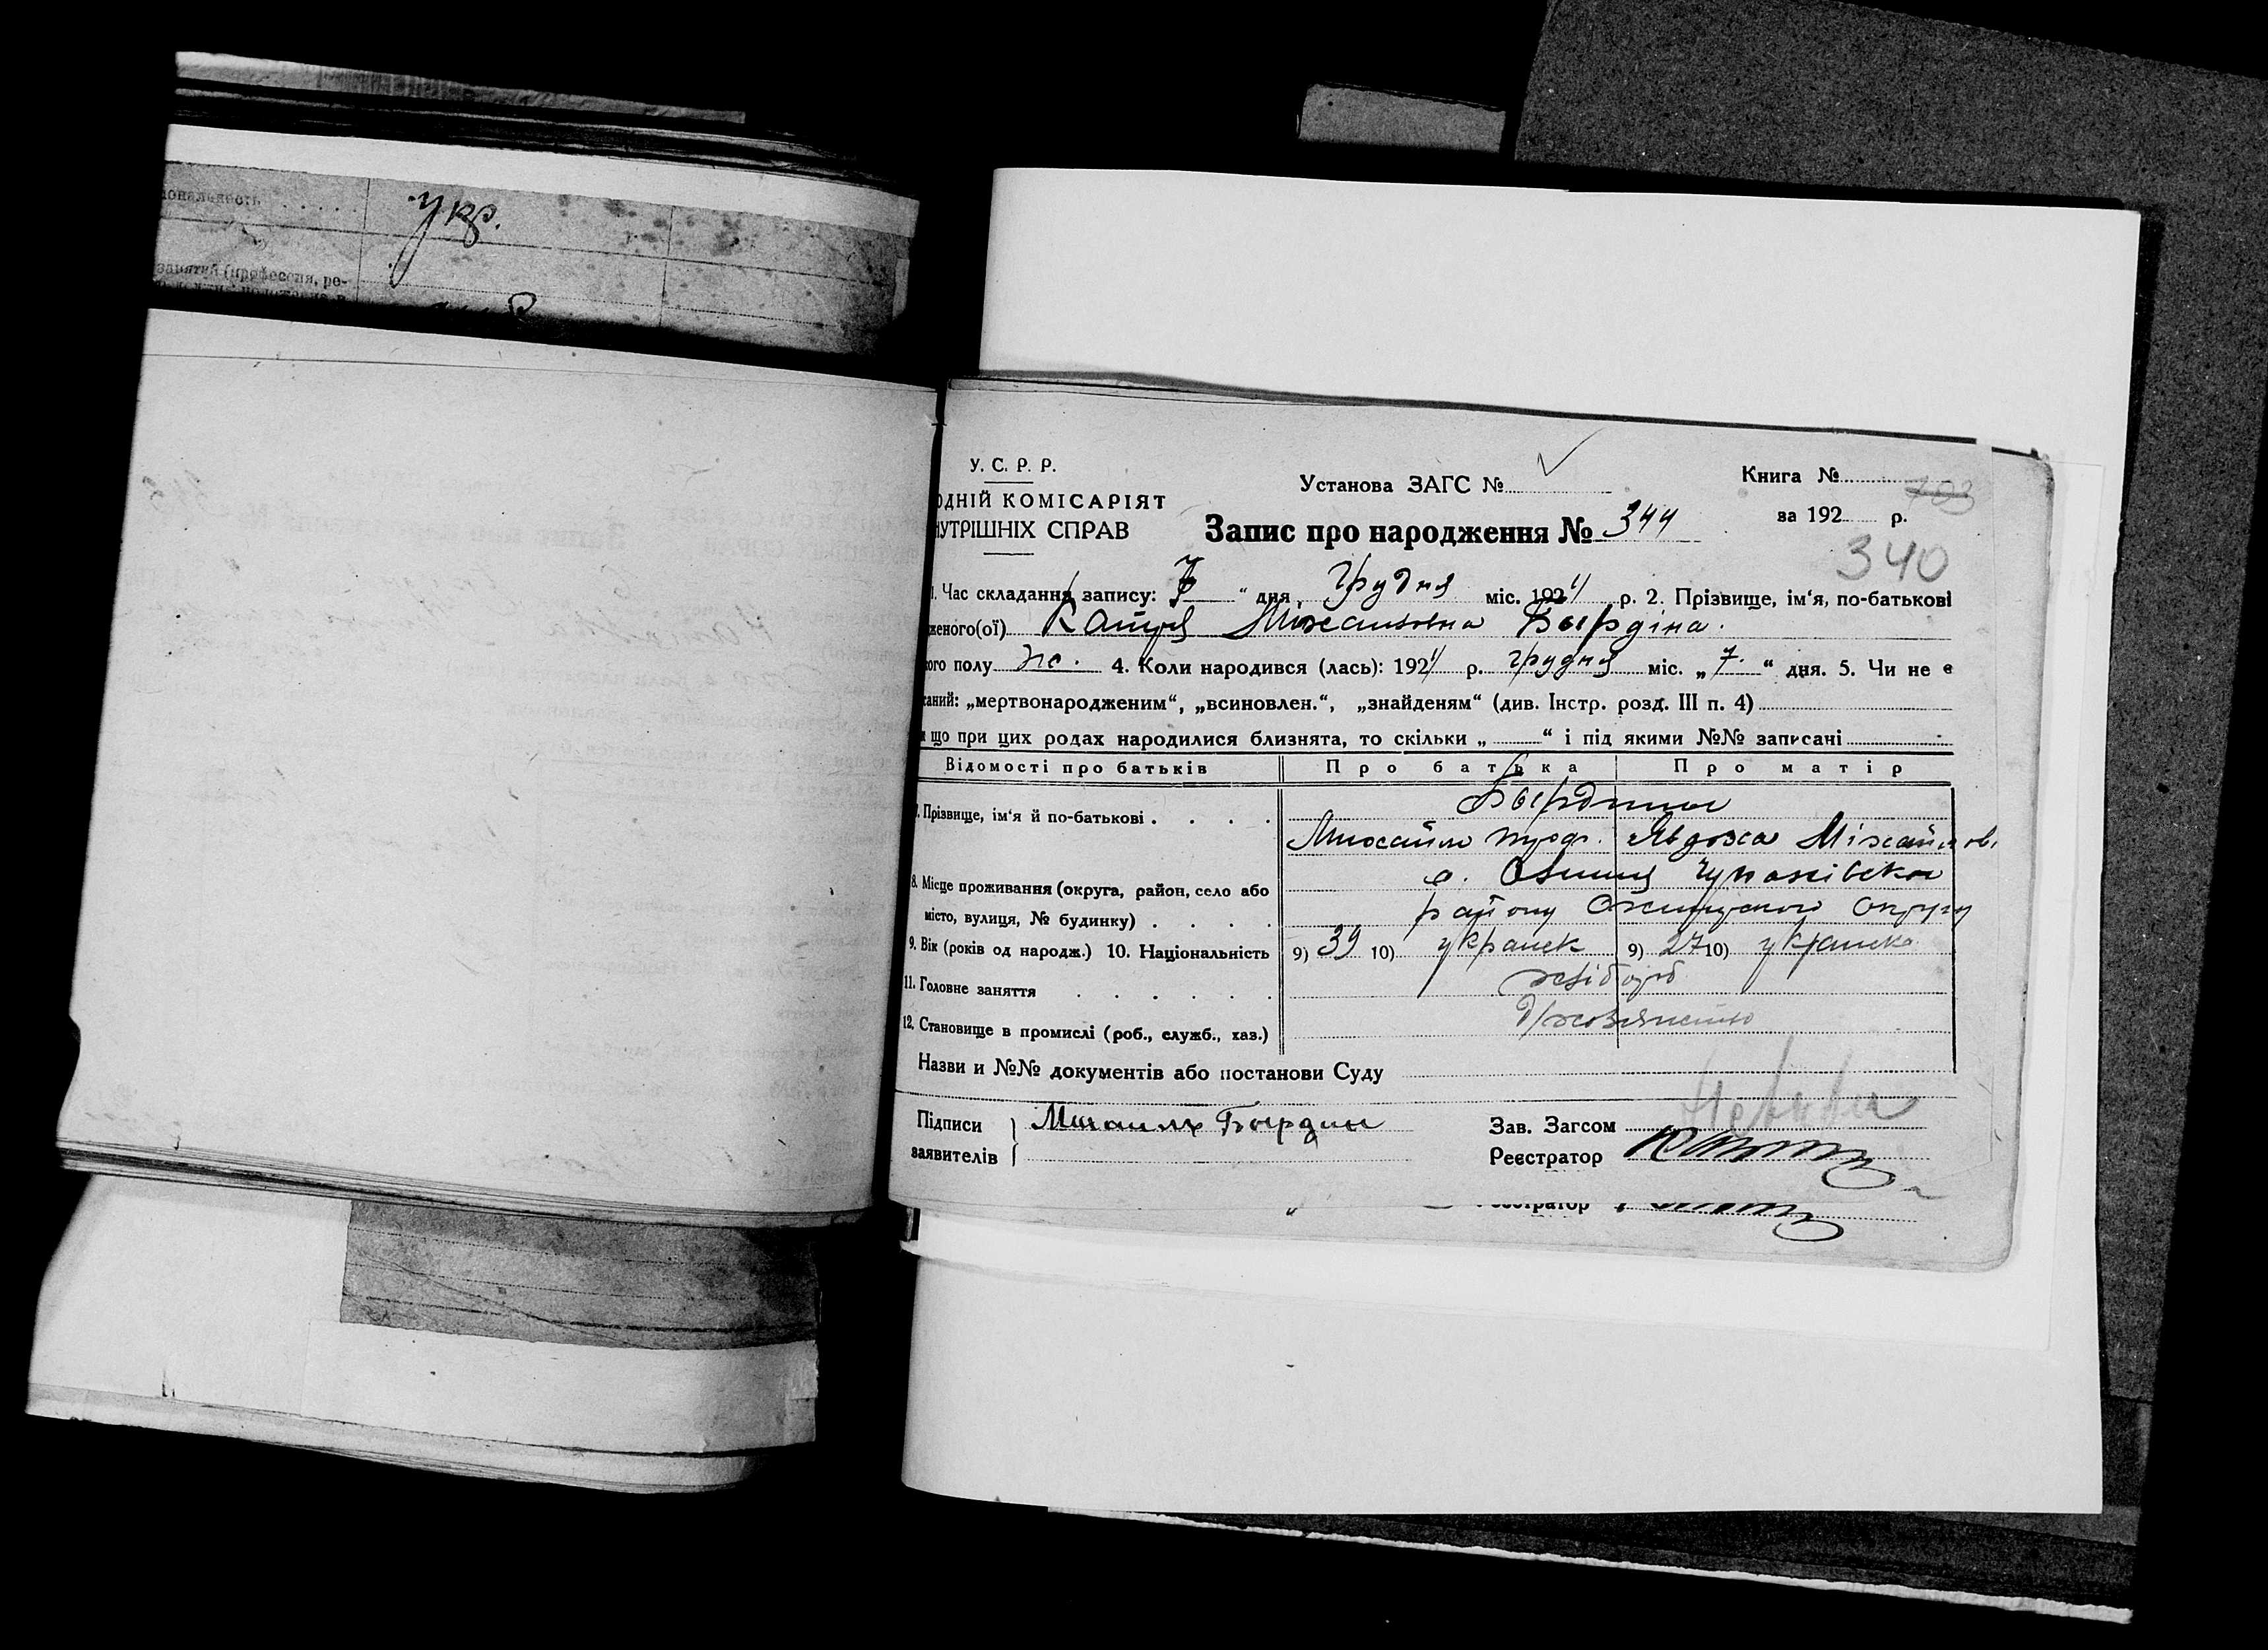 ональность . . . . . укр.
занятий (профессия, ре-
У. С. Р. Р.
ОДНІЙ КОМІСАРІЯТ
НУТРІШНІХ СПРАВ
Установа ЗАГС №
Книга №
703
за 192 р.
Запис про народження № 344
340
1. Час складання запису: 7 " дня Грудня міс. 1924 р. 2. Прізвище, ім'я, по-батькові
женого(ої) Катря Міхайловна Бырдіна.
ого полу ж. 4. Коли народився (лась): 1924 р. грудня міс. „ 7. “ дня. 5. Чи не є
саний: „мертвонародженим“, „всиновлен.“, „знайденям“ (див. Інстр. розд. III п. 4)
и що при цих родах народилися близнята, то скільки „ “ і під якими №№ записані
Відомості про батьків Про батька Про матір
Бырдины
7. Прізвище, ім'я й по-батькові . . . .
Михайло Явдоха Міхайлов.
8. Місце проживання (округа, район, село або
місто, вулиця, № будинку) . . . .
с.
району округу
9. Вік (років од народж.) 10. Національність 9) 39 10) украпек 9) 27 10) украпека
11. Головне заняття . . . . . . хлібороб
12. Становище в промислі (роб., служб., хаз.)
Назви и №№ документів або постанови Суду
Підписи
заявителів
Михаилъ Бырдин
Зав. Загсом
Реєстратор
еєстратор